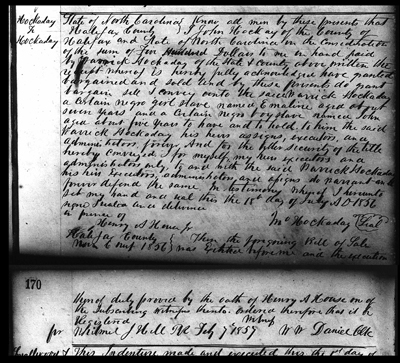 Hockaday
To
Hockaday
State of North Carolina Know all men by these presents that
Halifax County I John Hockaday of the County of
Halifax and State of North Carolina in the Consideration
of the sum of five Hundred Dollars to me in hand paid
by Warrick Hockaday of the State & County above written the
receipt whereof is hereby fully acknowledged have granted
bargained and sold and by these presents do grant
bargain sell & convey unto the said Warrick Hockaday
a Certain negro girl slave named Emaline aged about
seven years and a Certain negro boy slave named John
aged about five years To have and to hold to him the said
Warrick Hockaday his heirs assigns, executors, and
administrators, forever, And for the better security of the title
hereby conveyed I for myself, my heirs executors and
administrators only bind with the said Warrick Hockaday
his heirs Executors, administrators, and assigns do warrant and
forever defend the same In testimony whereof I hereunto
set my hand and seal this the 15th day of July A D 1856
signed Sealed and delivered Jno Hockaday Seal
in presence of
Henry A House Jr
Halifax County Then the foregoing Bill of Sale
was before me and the execution
170
thereof duly proved by the oath of Henry A House one of
the Subscribing witness thereto. Ordered therefore that it be
Registered
for Whitmel J Hill PR Feby 7 1857 W W Daniel Clk
This Indenture made and executed this day